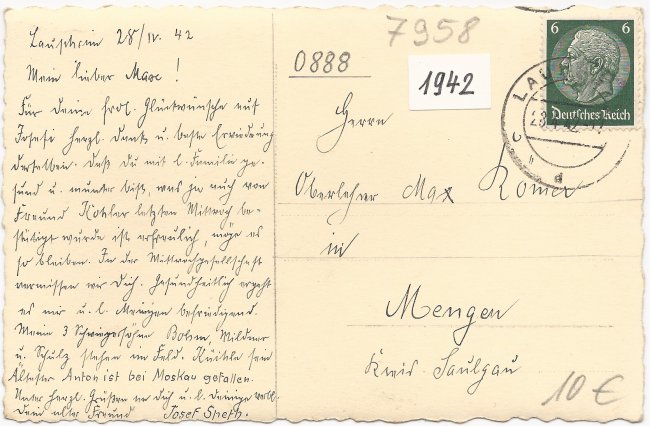 Laupheim 28/IV. 42
Mein lieber Max!
Für Deine frdl. Glückwünsche auf
Josefi herzl. Dank u. beste Erwiderung
derselben. Daß Du mit l. Familie ge-
sund u. munter bist, was ja auch von
Freund Kohler letzten Mittwoch be-
stätigt wurde ist erfreulich, möge es
so bleiben. In der Mittwochgesellschaft
vermissen wir Dich. Gesundheitlich ergeht
es mir u. l. Meinigen befriedigend.
Meine 3 Schwiegersöhne Bohm, Mildner
u. Schulz stehen im Feld. sein
Ältester Anton ist bei Moskau gefallen.
Unter herzl. Grüßen an Dich u. l. Deinige verbl.
Dein alter Freund Josef
7958
0888
1942
Herrn
Oberlehrer Max Romer
in
Mengen
Kreis Saulgau
10 €
6 6
Deutsches Reich
LAU